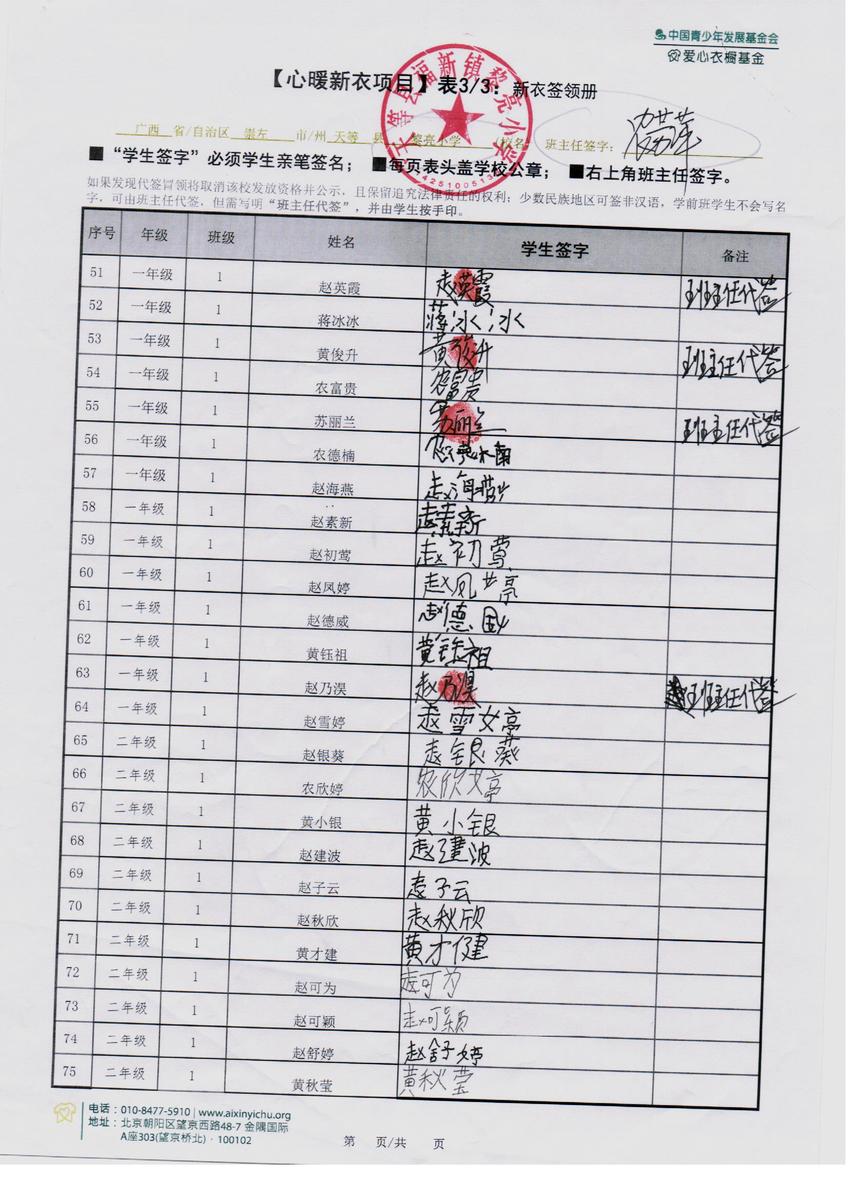 中国青少年发展基金会
爱心衣橱基金
【心暖新衣项目】表3/3：新衣签领册
天等县福新镇黎亮小学
425100513
广西 省/自治区 崇左 市/州 天等 县 黎亮小学 (校名) 班主任签字：
■“学生签字”必须学生亲笔签名； ■每页表头盖学校公章； ■右上角班主任签字。
如果发现代签冒领将取消该校发放资格并公示，且保留追究法律责任的权利；少数民族地区可签非汉语，学前班学生不会写名
字，可由班主任代签，但需写明“班主任代签”，并由学生按手印。
序号 年级 班级 姓名 学生签字 备注
51 一年级 1 赵英霞 赵英霞 班主任代签
52 一年级 1 蒋冰冰 蒋冰冰
53 一年级 1 黄俊升 黄俊升 班主任代签
54 一年级 1 农富贵 农富贵
55 一年级 1 苏丽兰 苏丽兰 班主任代签
56 一年级 1 农德楠 农德楠
57 一年级 1 赵海燕 赵海燕
58 一年级 1 赵素新 赵素新
59 一年级 1 赵初莺 赵初莺
60 一年级 1 赵凤婷 赵凤婷
61 一年级 1 赵德威 赵德威
62 一年级 1 黄钰祖 黄钰祖
63 一年级 1 赵乃淏 赵乃淏 班主任代签
64 一年级 1 赵雪婷 赵雪婷
65 二年级 1 赵银葵 赵银葵
66 二年级 1 农欣婷 农欣婷
67 二年级 1 黄小银 黄小银
68 二年级 1 赵建波 赵建波
69 二年级 1 赵子云 赵子云
70 二年级 1 赵秋欣 赵秋欣
71 二年级 1 黄才建 黄才健
72 二年级 1 赵可为 赵可为
73 二年级 1 赵可颖 赵可颖
74 二年级 1 赵舒婷 赵舒婷
75 二年级 1 黄秋莹 黄秋莹
电话：010-8477-5910 | www.aixinyichu.org
地址：北京朝阳区望京西路48-7 金隅国际
A座303(望京桥北)·100102
第 页/共 页